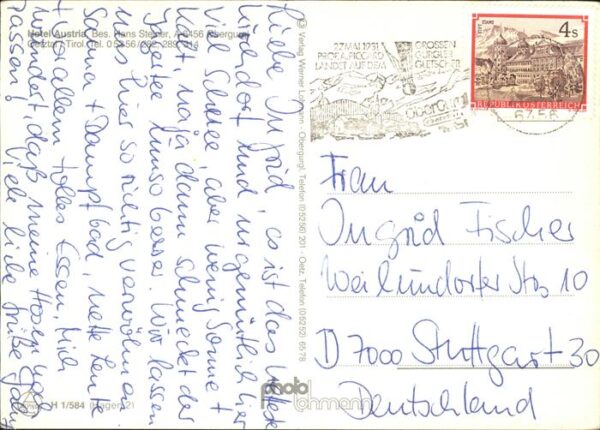 Hotel Austria, Bes. Hans Steiner, A-6456 Obergurgl
Ötztal / Tirol, Tel. 0 52 56/282, 289, 314
Liebe Ingrid, es ist das letzte
und urgemütlich hier
viel Schnee, aber wenig Sonne +
kalt, naja dann schmeckt der
Jagatee umso besser. Wir lassen
uns hier so richtig verwöhnen
Sauna + Dampfbad, nette Leute
+ vor allem tolles Essen, mich
wundert, daß meine Hosen noch
passen! Viele liebe Grüße
© Verlag Werner Lohmann · Obergurgl, Telefon (0 52 56) 201 · Oetz, Telefon (0 52 52) 65 78
H 1/584 (Hager 2)
photo
lohmann
27. MAI 1931
PROF. A. PICCARD
LANDET AUF DEM
GROSSEN
GURGLER
GLETSCHER
Obergurgl
STAMS
4 S
REPUBLIK ÖSTERREICH
Frau
Ingrid Fischer
Weilimdorfer Str. 10
D 7000 Stuttgart 30
Deutschland